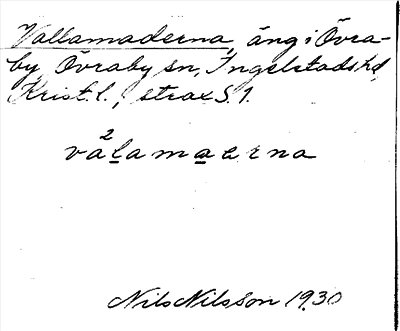 Vallamaderna, äng i Övra-
by, Övraby sn, Ingelstads hd,
Krist. l., strax S. 1.
va²lamaerna
Nils Nilsson 1930